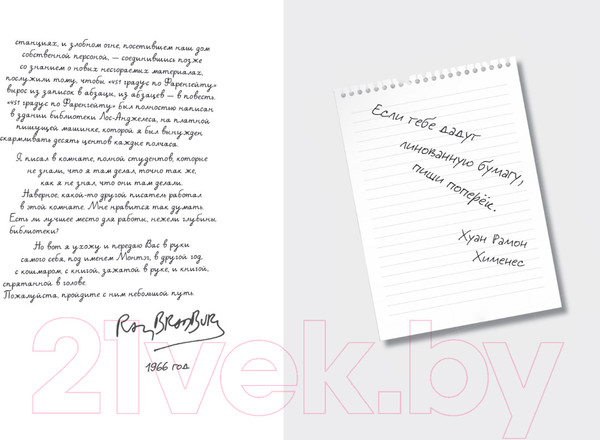 станциях, и злобном огне, посетившем наш дом
собственной персоной, — соединившись позже
со знанием о новых несгораемых материалах,
послужили тому, чтобы «451 градус по Фаренгейту»
вырос из записок в абзацы, из абзацев — в повесть.
«451 градус по Фаренгейту» был полностью написан
в здании библиотеки Лос-Анджелеса, на платной
пишущей машинке, которой я был вынужден
скармливать десять центов каждые полчаса.
Я писал в комнате, полной студентов, которые
не знали, что я там делал, точно так же,
как я не знал, что они там делали.
Наверное, какой-то другой писатель работал
в этой комнате. Мне нравится так думать.
Есть ли лучшее место для работы, нежели глубины
библиотеки?
Но вот я ухожу и передаю Вас в руки
самого себя, под именем Монтэг, в другой год,
с кошмаром, с книгой, зажатой в руке, и книгой,
спрятанной в голове.
Пожалуйста, пройдите с ним небольшой путь.
RAY BRADBURY
1966 год
Если тебе дадут
линованную бумагу,
пиши поперёк.
Хуан Рамон
Хименес
21vek.by